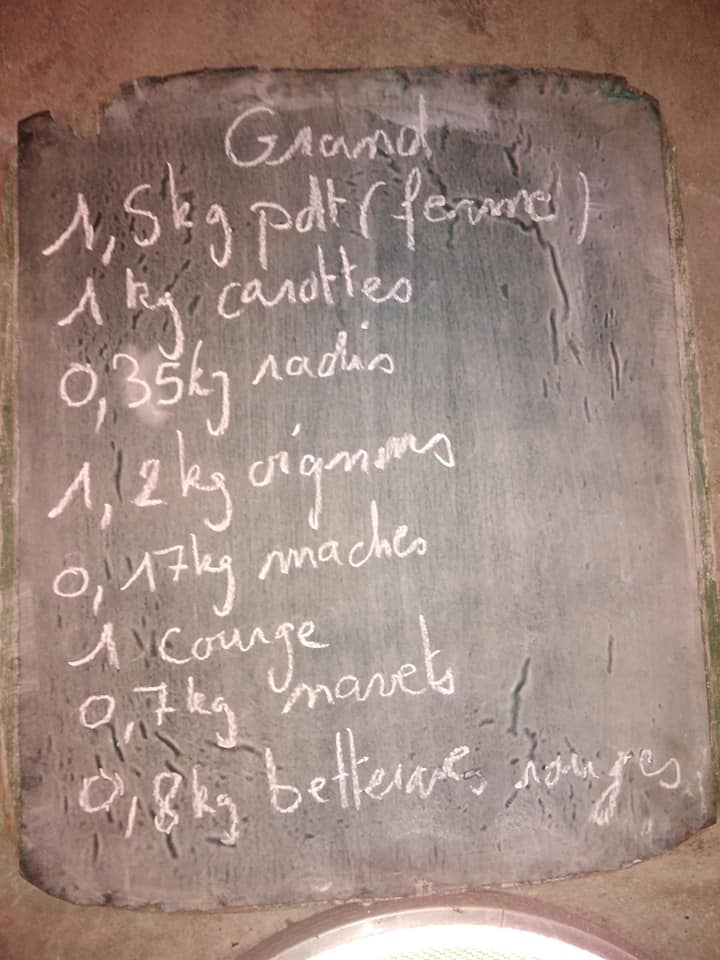 Grand
1,5kg pdt (ferme)
1 kg carottes
0,35kg radis
1,2kg oignons
0,17kg maches
1 courge
0,7kg navets
0,8kg betteraves rouges